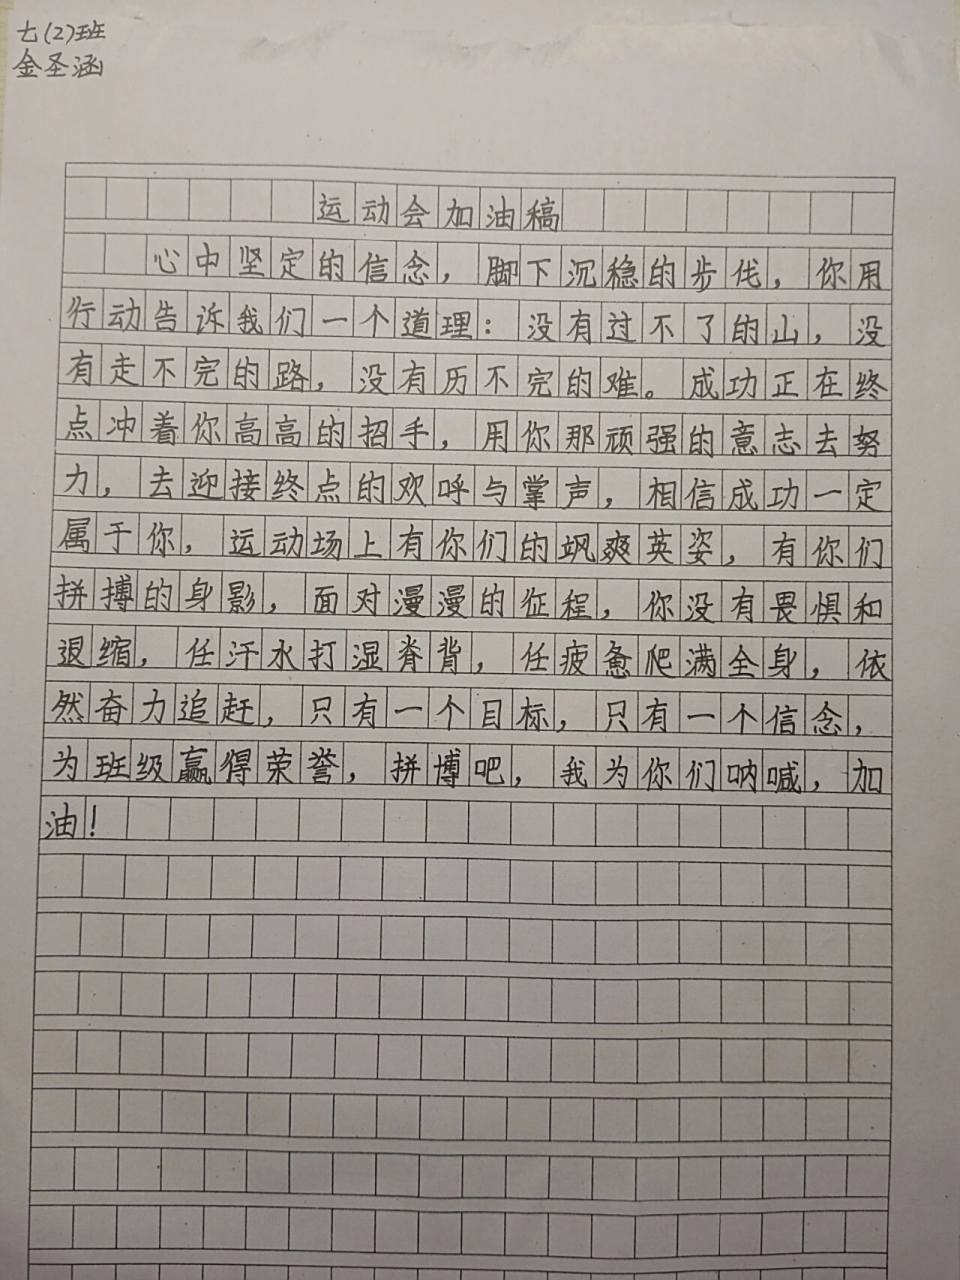 七(2)班
金圣涵
运动会加油稿
心中坚定的信念，脚下沉稳的步伐，你用
行动告诉我们一个道理：没有过不了的山，没
有走不完的路，没有历不完的难。成功正在终
点冲着你高高的招手，用你那顽强的意志去努
力，去迎接终点的欢呼与掌声，相信成功一定
属于你，运动场上有你们的飒爽英姿，有你们
拼搏的身影，面对漫漫的征程，你没有畏惧和
退缩，任汗水打湿脊背，任疲惫爬满全身，依
然奋力追赶，只有一个目标，只有一个信念，
为班级赢得荣誉，拼博吧，我为你们呐喊，加
油！